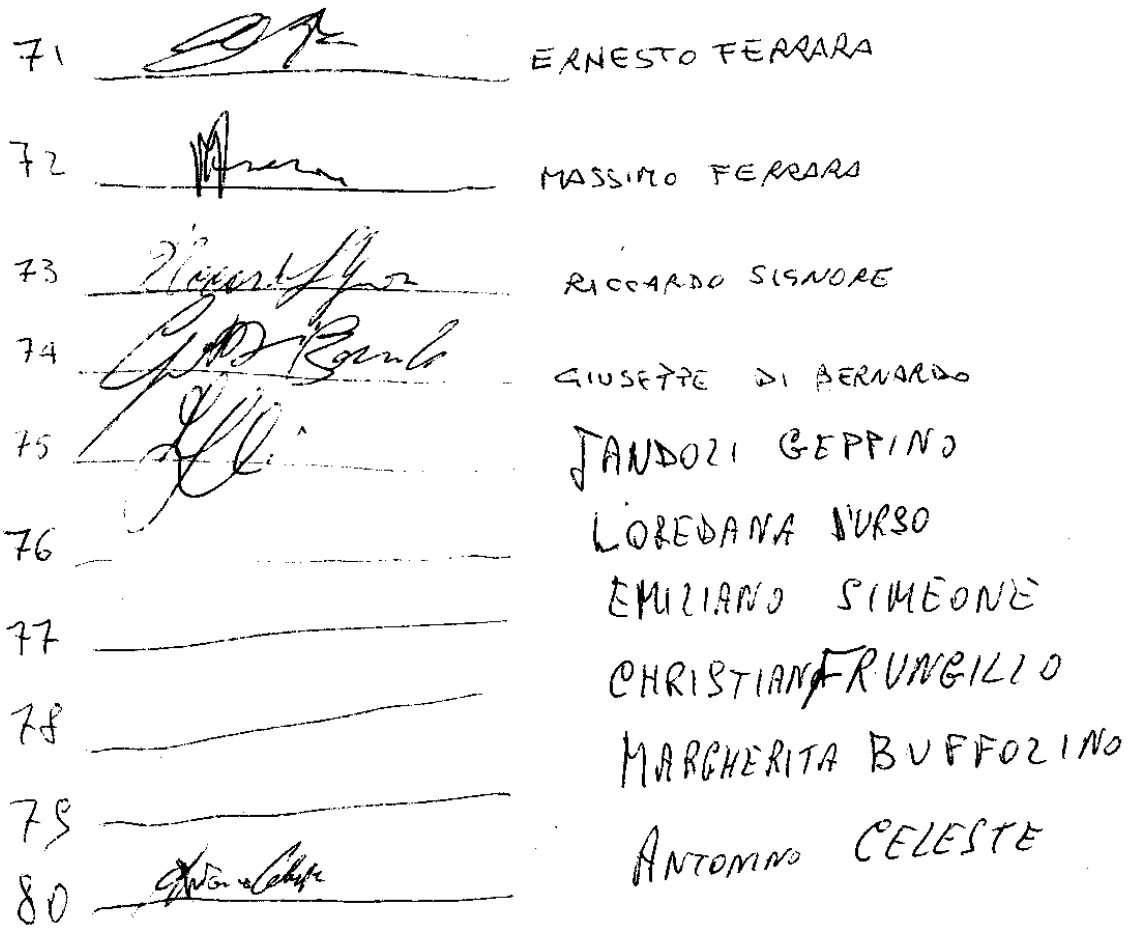 71 ERNESTO FERRARA
72 MASSIMO FERRARA
73 RICCARDO SIGNORE
74 GIUSEPPE DI BERNARDO
75 JANDOLI GEPPINO
76 LOREDANA D'URSO
77 EMILIANO SIMEONE
78 CHRISTIAN FRUNGILLO
79 MARGHERITA BUFFOLINO
80 Antonino Celeste ANTONINO CELESTE